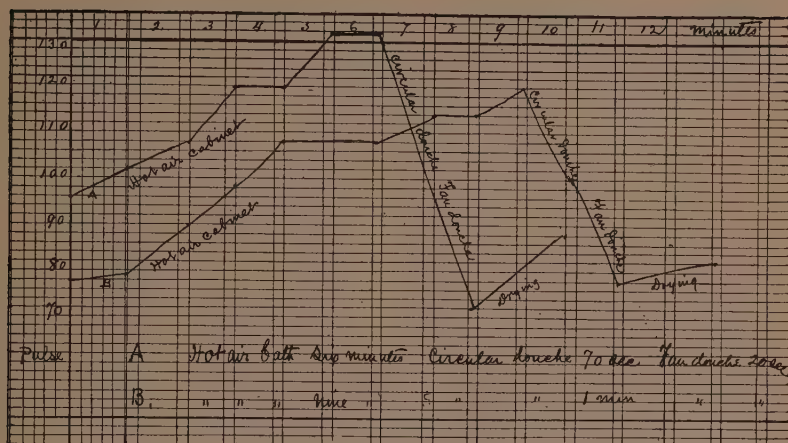 1 2 3 4 5 6 7 8 9 10 11 12 minutes
130
120
110
100
90
80
70
A
Hot air cabinet
B
Hot air cabinet
circular douche Fan douche
Drying
Circular Douche
Fan Douche
Drying
Pulse A Hot air bath minutes Circular douche 70 sec Fan douche 20 sec
B. " " " Nine " " " 1 min " "